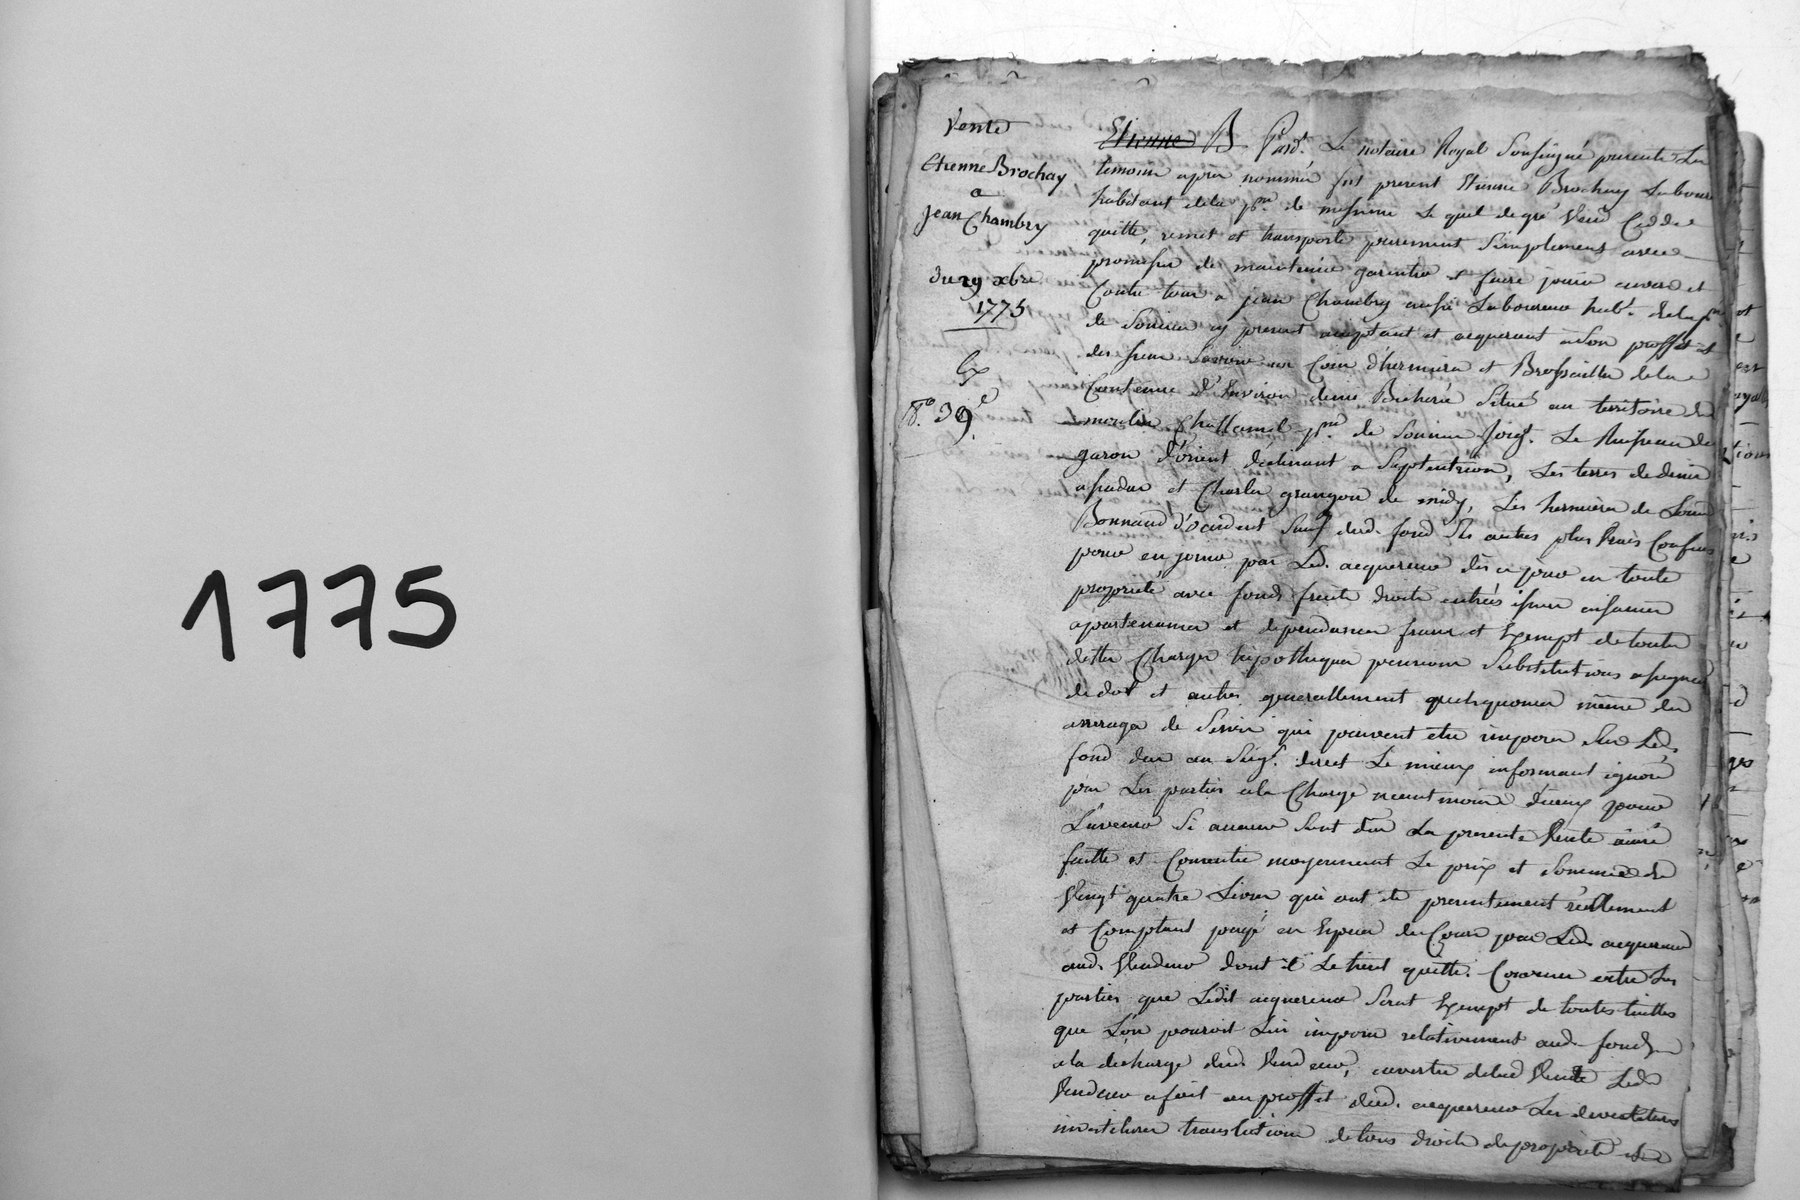 1775
Vente
Etienne Brochay
a
Jean Chambry
du 29 xbre
1775
N.° 39.e
Etienne B Pard.t Le notaire Royal Soussigné presents Les
temoins apres nommés fut present Etienne Brochay Laboureur
habitant de la p.sse de Le quel de gré Vend Cedde
quitte, remet et transporte purement Simplement avec
promesse de maintenir garentir et faire jouir envers et
Contre tous a jean Chambry aussi Laboureur hab.t de la p.sse
de cy present acceptant et acquerant a Son proffit et
des siens Coin d'hermiere et Brossaille de la
Contenue d'Environ demie Bicheré Situé au territoire de
moulin p.sse de joig.t Le Ruisseau de
garon d'orient declinant a Septentrion, Les terres de denis
et Charles grangon de midy, Les hermieres de Louis
Bonnand d'occident Sauf dud. fond Ses autres plus Vrais Confins
pour en jouir par Led. acquereur dès ce jour en toute
proprieté avec fonds fruits droits entrées issues aisances
apartenances et dependances franc et Exempt de toutes
dettes Charges hipotheques pensions Substitutions
de dot et autres generallement quelquonques même des
arrerages de Servis qui peuvent etre imposes Sur Led.
fond dus au Seig.r direct Le mieux informant ignoré
par Les parties a la Charge neantmoins d'iceux pour
L'avenir Si aucuns Sont dus La presente Vente ainsi
faitte et Consentie moyennant Le prix et Somme de
Vingt quatre Livres qui ont été presentement réellement
et Comptant payé en Especes de Cours par Led. acquereur
aud. Vendeur dont il Le tient quitte. Convenu entre Les
parties que Ledit acquereur Serat Exempt de toutes tailles
que L'on pouroit Lui imposer relativement aud. fond
a la decharge dud. Vendeur, envertu de lad. Vente Led.
Vendeur a fait au proffit dud. acquereur Les devestitures
investitures translations de tous droits de proprieté